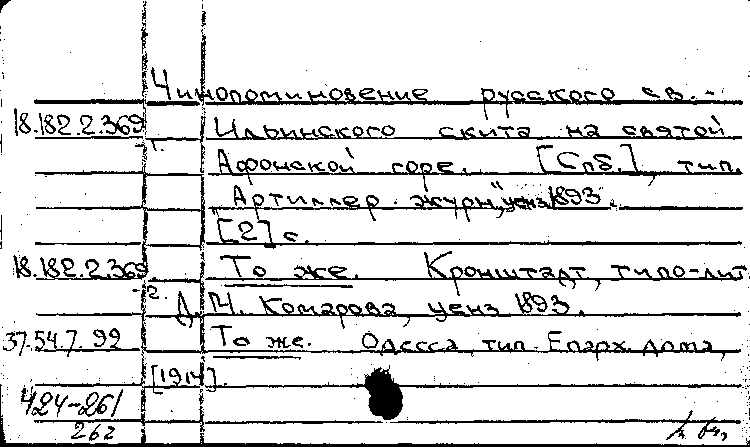 Чинопоминовение русского св.-
18.182.2.369 Ильинского скита на святой
-1.
Афонской горе. [Спб.], тип.
"Артиллер. журн.", ценз. 1893.
[2] с.
18.182.2.369 То же. Кронштадт, типо-лит.
-2. Д. М. Комарова, ценз. 1893.
37.54.7.92 То же. Одесса, тип. Епарх. дома,
[1914].
424-261
262